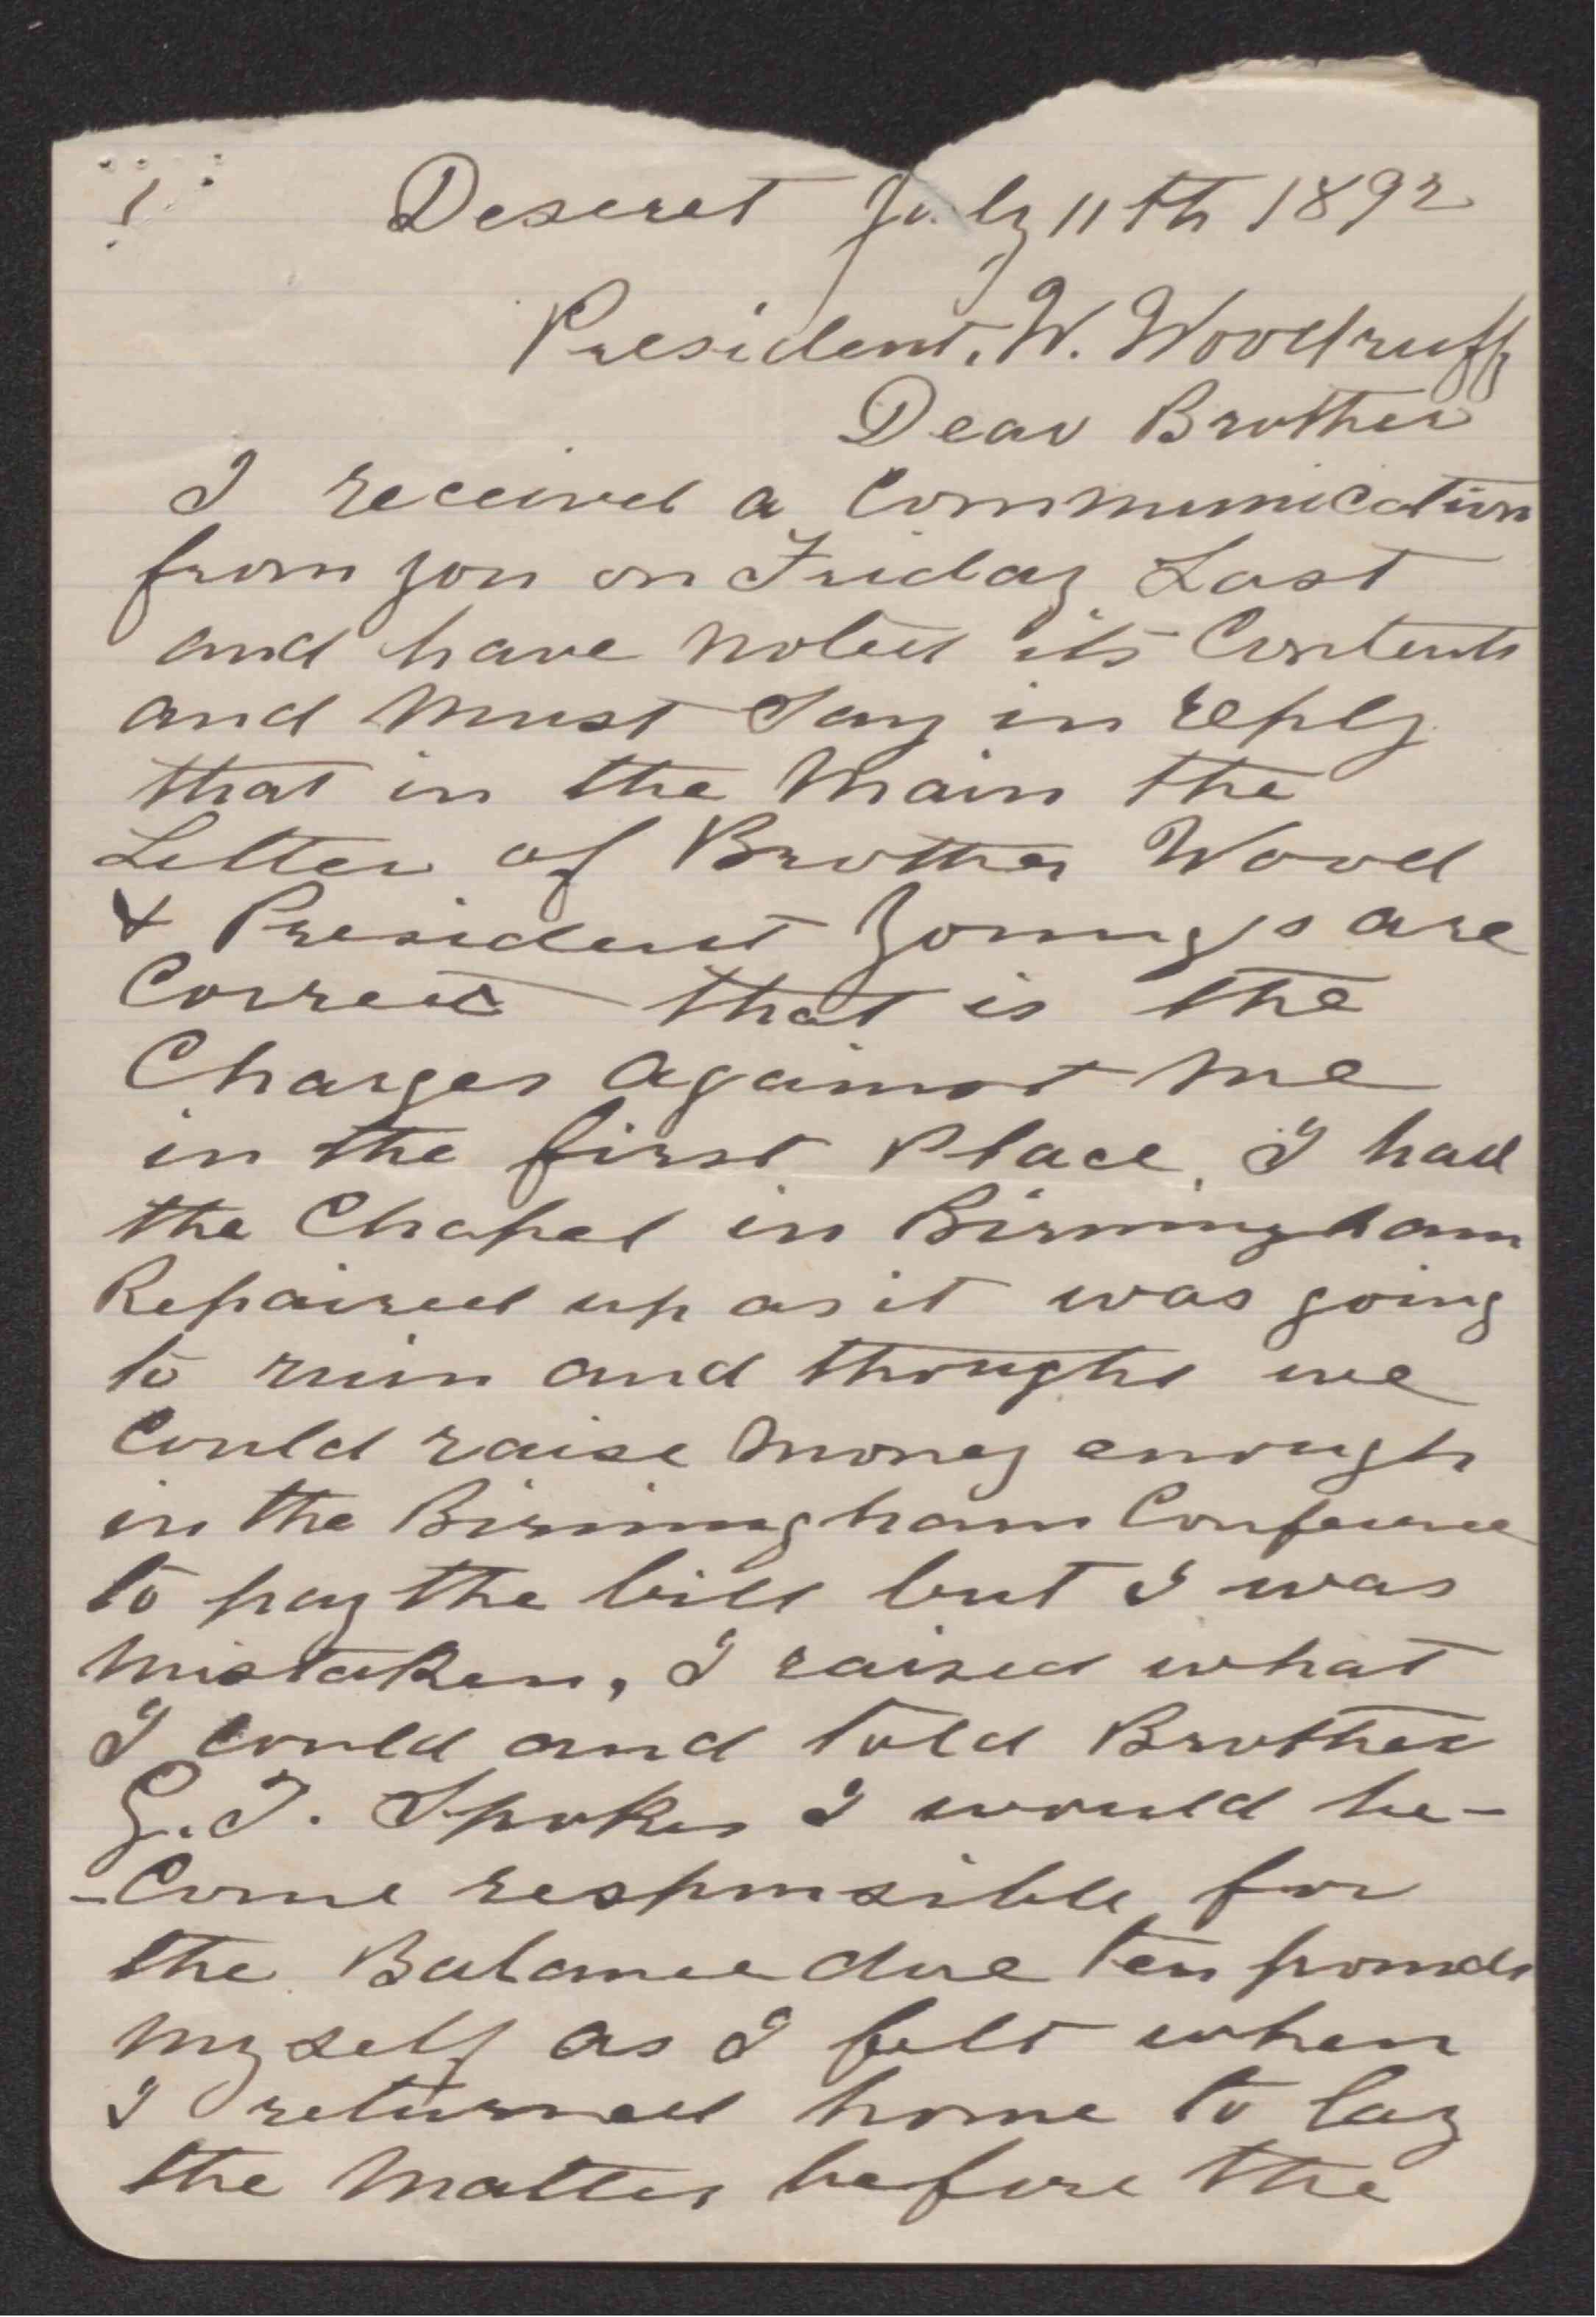 Deseret July 11th 1892
President. W. Woodruff
Dear Brother
I received a Communication
from you on Friday Last
and have noted its Contents
and Must Say in reply
that in the Main the
Letter of Brother Wood
& President Youngs are
Correct that is the
Charges against me
in the first Place, I had
the Chapel in Birmingham
Repaired up as it was going
to ruin and thought we
Could raise Money enough
in the Birmingham Conference
to pay the bill but I was
Mistaken, I raised what
I Could and told Brother
G. T. Spokes I would be-
-Come responsible for
the Balance due ten pounds
Myself as I felt when
I returned home to lay
the Matter before the